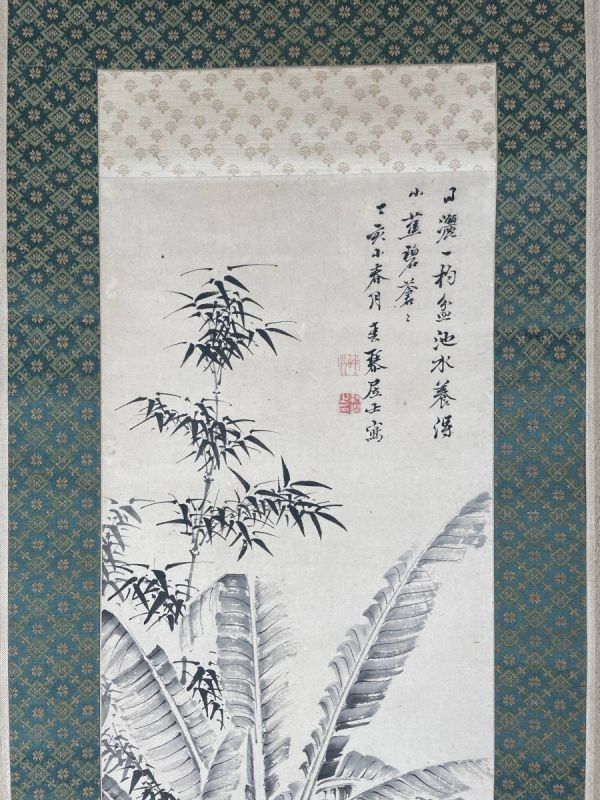 日灑一杓盆池水養得
小蕉碧蒼〻
丁亥小春月春琴居士寫